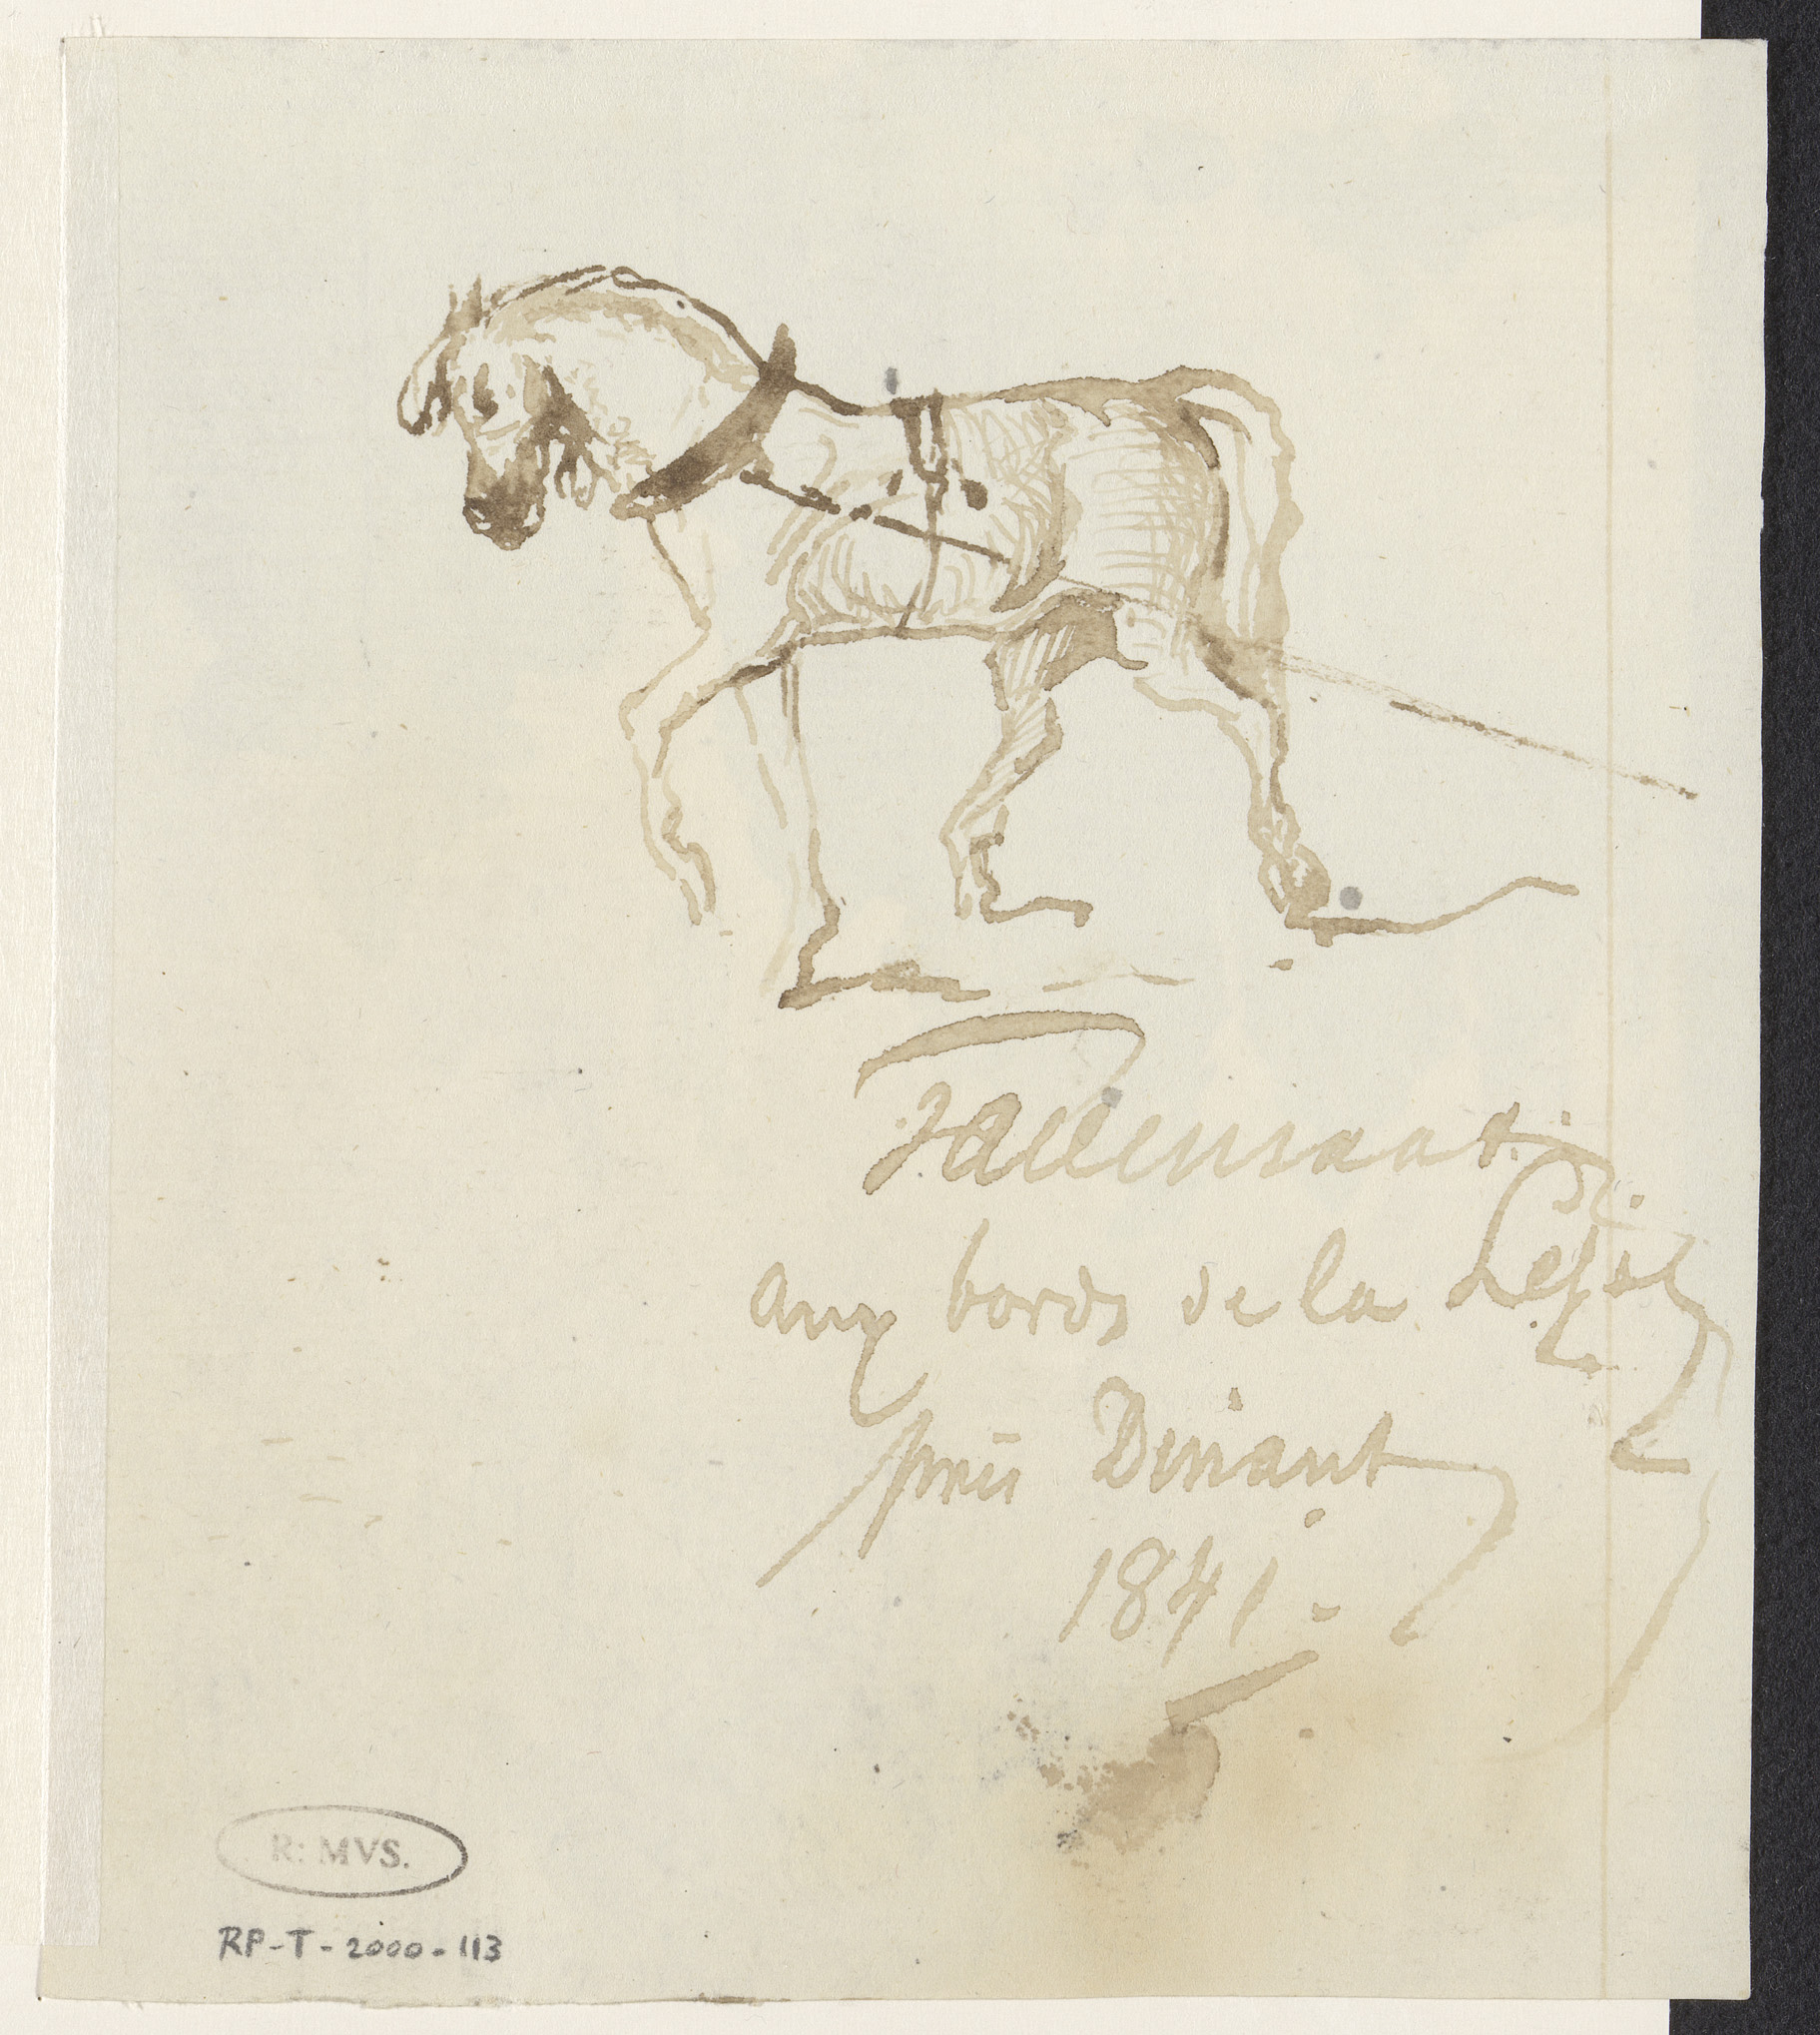 aux bords de la Lesse
près Dinant
1841.
R: MVS.
RP-T-2000-113